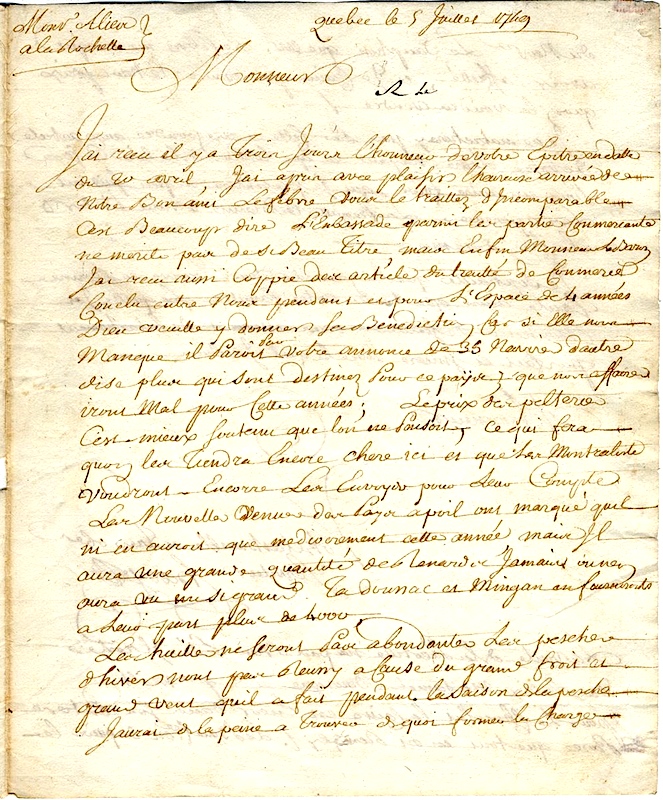 Monsr. Alier
a la Rochelle
Quebec le 5 Juillet 1749
Monsieur
R le
J'ai recu il y a Trois Jours l'honneur de votre Epitre en datte
du 20 avril J'ai apris avec plaisir l'heureuse arrivée de
Notre Bon ami Lefebre vous le traittez d'Incomparable
C'est Beaucoup dire L'Enbassade parmi les partie Commercante
ne merite pas de si Beau Titre mais Enfin Monsieur
J'ai recu aussi Coppie des article du traitté de Commerce
Conclu entre Nous pendant et pour L'Espace de 4 années
Dieu veuille y donner sa Benediction, Car si Elle nous
Manque il Paroit par votre annonce de 35 Navire d'autre
dise plus qui sont destinez pour ce païs que nos affaire
iront Mal pour Cette années; Le prix des pelterie
C'est mieux soutenu que lon ne Pensoit, ce qui fera
quon les Tiendra Encore chere ici et que Les Montraliste
voudront Encorre Les Envoyer pour Leur Compte
Les Nouvelle venue des Payx apoil ont marqué quil
ni en auroit que mediocrement cette année mais Il
aura une grande quantité de Renard Jamais
aura vu un si grand Ta doussac et Mingan en
a Leur part plus de 4000,
Les huille ne seront Pas abondante Les pesche
d'hiver nont pas Reussy a Cause du grand froit et
grand vent quil a fait pendant la saison de la pesche
Jaurai de la peine a Trouver de quoi former la Charge